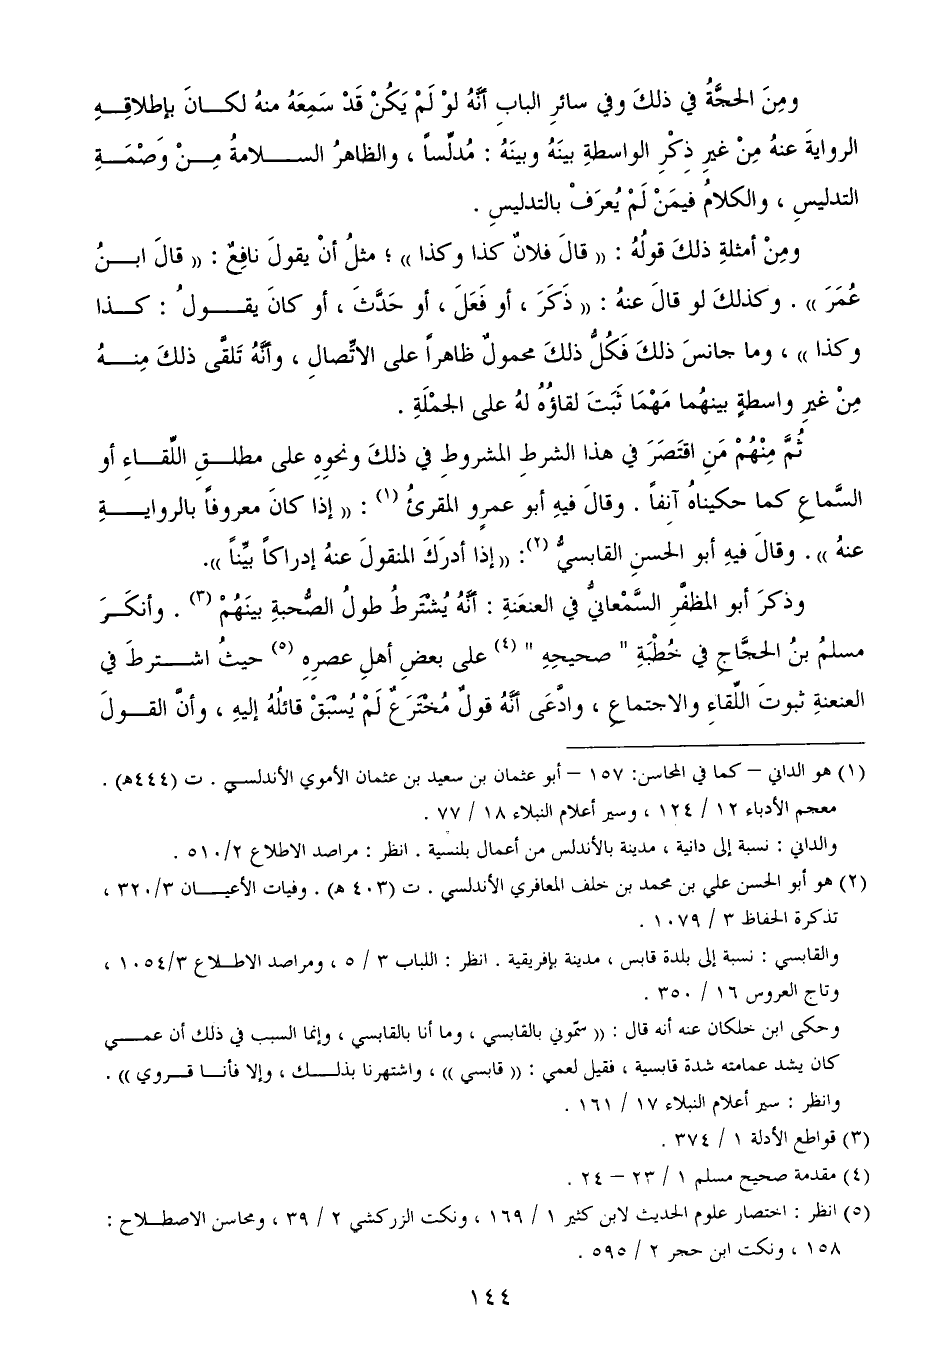 ومِنَ الحجَّةُ في ذلكَ وفي سائرِ البابِ أنَّهُ لوْ لَمْ يَكُنْ قَدْ سَمِعَهُ منهُ لكـانَ بإطلاقِهِ
الروايةَ عنهُ مِنْ غيرِ ذِكْرِ الواسطةِ بينَهُ وبينَهُ : مُدلِّساً ، والظاهرُ السـلامةُ مِـنْ وَصْمَـةِ
التدليسِ ، والكلامُ فيمَنْ لَمْ يُعرَفْ بالتدليسِ .
ومِنْ أمثلةِ ذلكَ قولُهُ : (( قالَ فلانٌ كذا وكذا )) ؛ مثلُ أنْ يقولَ نافِعٌ : (( قالَ ابـنُ
عُمَرَ )) . وكذلكَ لو قالَ عنهُ : (( ذَكَرَ ، أو فَعَلَ ، أو حَدَّثَ ، أو كانَ يقـولُ : كـذا
وكذا )) ، وما جانسَ ذلكَ فَكُلُّ ذلكَ محمولٌ ظاهراً على الاتِّصالِ ، وأنَّهُ تَلقَّى ذلكَ مِنـهُ
مِنْ غيرِ واسطةٍ بينهُما مَهْمَا ثَبَتَ لقاؤُهُ لهُ على الجمْلَةِ .
ثُمَّ مِنْهُمْ مَنِ اقتَصَرَ في هذا الشرطِ المشروطِ في ذلكَ ونحوِهِ على مطلـقِ اللِّقـاءِ أو
السَّماعِ كما حكيناهُ آنفاً . وقالَ فيهِ أبو عمرٍو المقرئُ (١) : (( إذا كانَ معروفاً بالروايـةِ
عنهُ )) . وقالَ فيهِ أبو الحسنِ القابسيُّ (٢): (( إذا أدرَكَ المنقولَ عنهُ إدراكاً بيِّناً )).
وذكرَ أبو المظفَّرِ السَّمْعانيُّ في العنعَنَةِ : أنَّهُ يُشْترطُ طولُ الصُّحبةِ بينَهُمْ (٣) . وأنكَـرَ
مسلمُ بنُ الحجَّاجِ في خُطْبَةِ " صحيحِهِ " (٤) على بعضِ أهلِ عصرِهِ (٥) حيثُ اشـترطَ في
العنعنةِ ثبوتَ اللِّقاءِ والاجتماعِ ، وادَّعَى أنَّهُ قولٌ مُخْتَرَعٌ لَمْ يُسْبَقْ قائلُهُ إليهِ ، وأنَّ القـولَ
(١) هو الداني – كما في المحاسن: ١٥٧ – أبو عثمان بن سعيد بن عثمان الأموي الأندلسـي . ت (٤٤٤هـ) .
معجم الأدباء ١٢ / ١٢٤ ، وسير أعلام النبلاء ١٨ / ٧٧ .
والداني : نسبة إلى دانية ، مدينة بالأندلس من أعمال بلنسية . انظر : مراصد الاطلاع ٥١٠/٢ .
(٢) هو أبو الحسن علي بن محمد بن خلف المعافري الأندلسي . ت (٤٠٣ هـ) . وفيات الأعيـان ٣٢٠/٣ ،
تذكرة الحفاظ ٣ / ١٠٧٩ .
والقابسي : نسبة إلى بلدة قابس ، مدينة بإفريقية . انظر : اللباب ٣ / ٥ ، ومراصد الاطـلاع ١٠٥٤/٣ ،
وتاج العروس ١٦ / ٣٥٠ .
وحكى ابن خلكان عنه أنه قال : (( سمّوني بالقابسي ، وما أنا بالقابسي ، وإنما السبب في ذلك أن عمـي
كان يشد عمامته شدة قابسية ، فقيل لعمي : (( قابسي )) ، واشتهرنا بذلـك ، وإلا فأنـا قـروي )) .
وانظر : سير أعلام النبلاء ١٧ / ١٦١ .
(٣) قواطع الأدلة ١ / ٣٧٤ .
(٤) مقدمة صحيح مسلم ١ / ٢٣ – ٢٤ .
(٥) انظر : اختصار علوم الحديث لابن كثير ١ / ١٦٩ ، ونكت الزركشي ٢ / ٣٩ ، ومحاسن الاصطـلاح :
١٥٨ ، ونكت ابن حجر ٢ / ٥٩٥ .
١٤٤